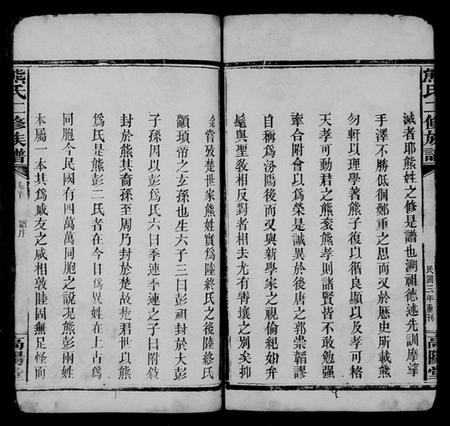 熊氏二修族譜
民國三年新刊
高陽堂
滅者耶熊姓之修是譜也溯祖德述先訓摩挲
手澤不勝低徊鄭重之思而又於歷史所載熊
勿軒以理學著熊子復以循良顯以及孝可格
天孝可動君之熊袞熊孝則諸賢皆不敢勉強
牽合附會以為榮是誠異於後唐之郭崇韜謬
自稱為汾陽後而又與新學家之視倫紀如弁
髦與聖教相反對者相去尤有霄壤之別矣抑
余嘗攷楚世家熊姓實為陸終氏之後陸終氏
顓頊帝之玄孫也生六子三曰彭祖封於大彭
子孫因以彭為氏六曰季連季連之子曰附敘
封於熊其裔孫至周乃封於楚故楚君世以熊
為氏是熊彭二氏者在今日為異姓在上古為
同胞今民國有四萬萬同胞之說現熊彭兩姓
本屬一本其為戚友之咸相敦睦固無足怪而
熊氏二修族譜
高陽堂